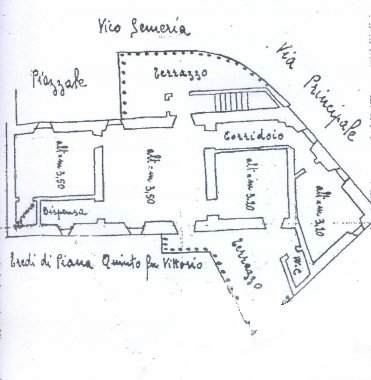 Vico Semeria
Via Principale
Terrazzo
Piazzale
Corridoio
alt = m 3,50
alt = m 3,50
alt = m 3,20
alt = m 3,20
Dispensa
w.c
Terrazzo
Eredi di Piana Quinto fu Vittorio